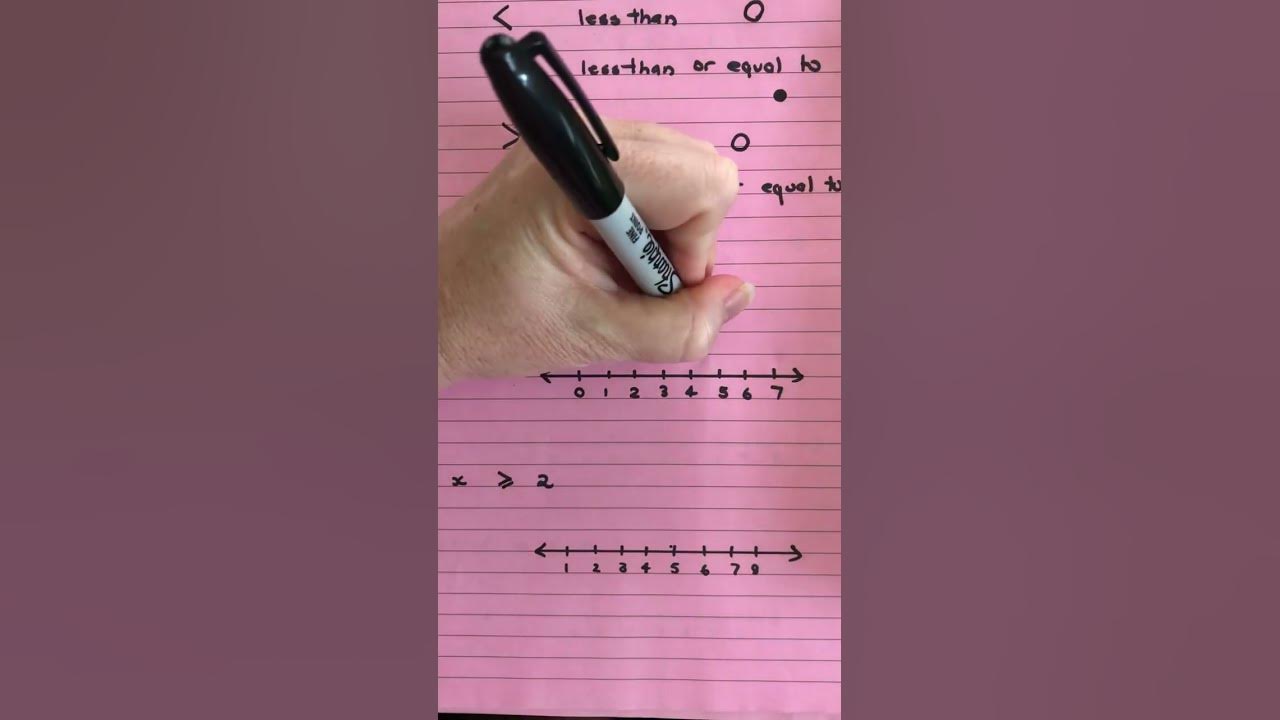 < less than O
less than or equal to
●
> O
equal to
FINE POINT
Sharpie
0 1 2 3 4 5 6 7
x ⩾ 2
1 2 3 4 5 6 7 8